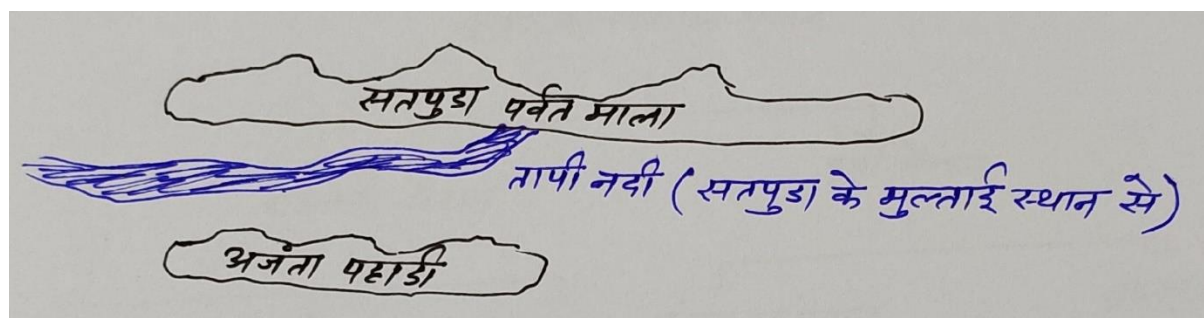 सतपुडा पर्वत माला
तापी नदी (सतपुडा के मुल्ताई स्थान से)
अजंता पहाडी